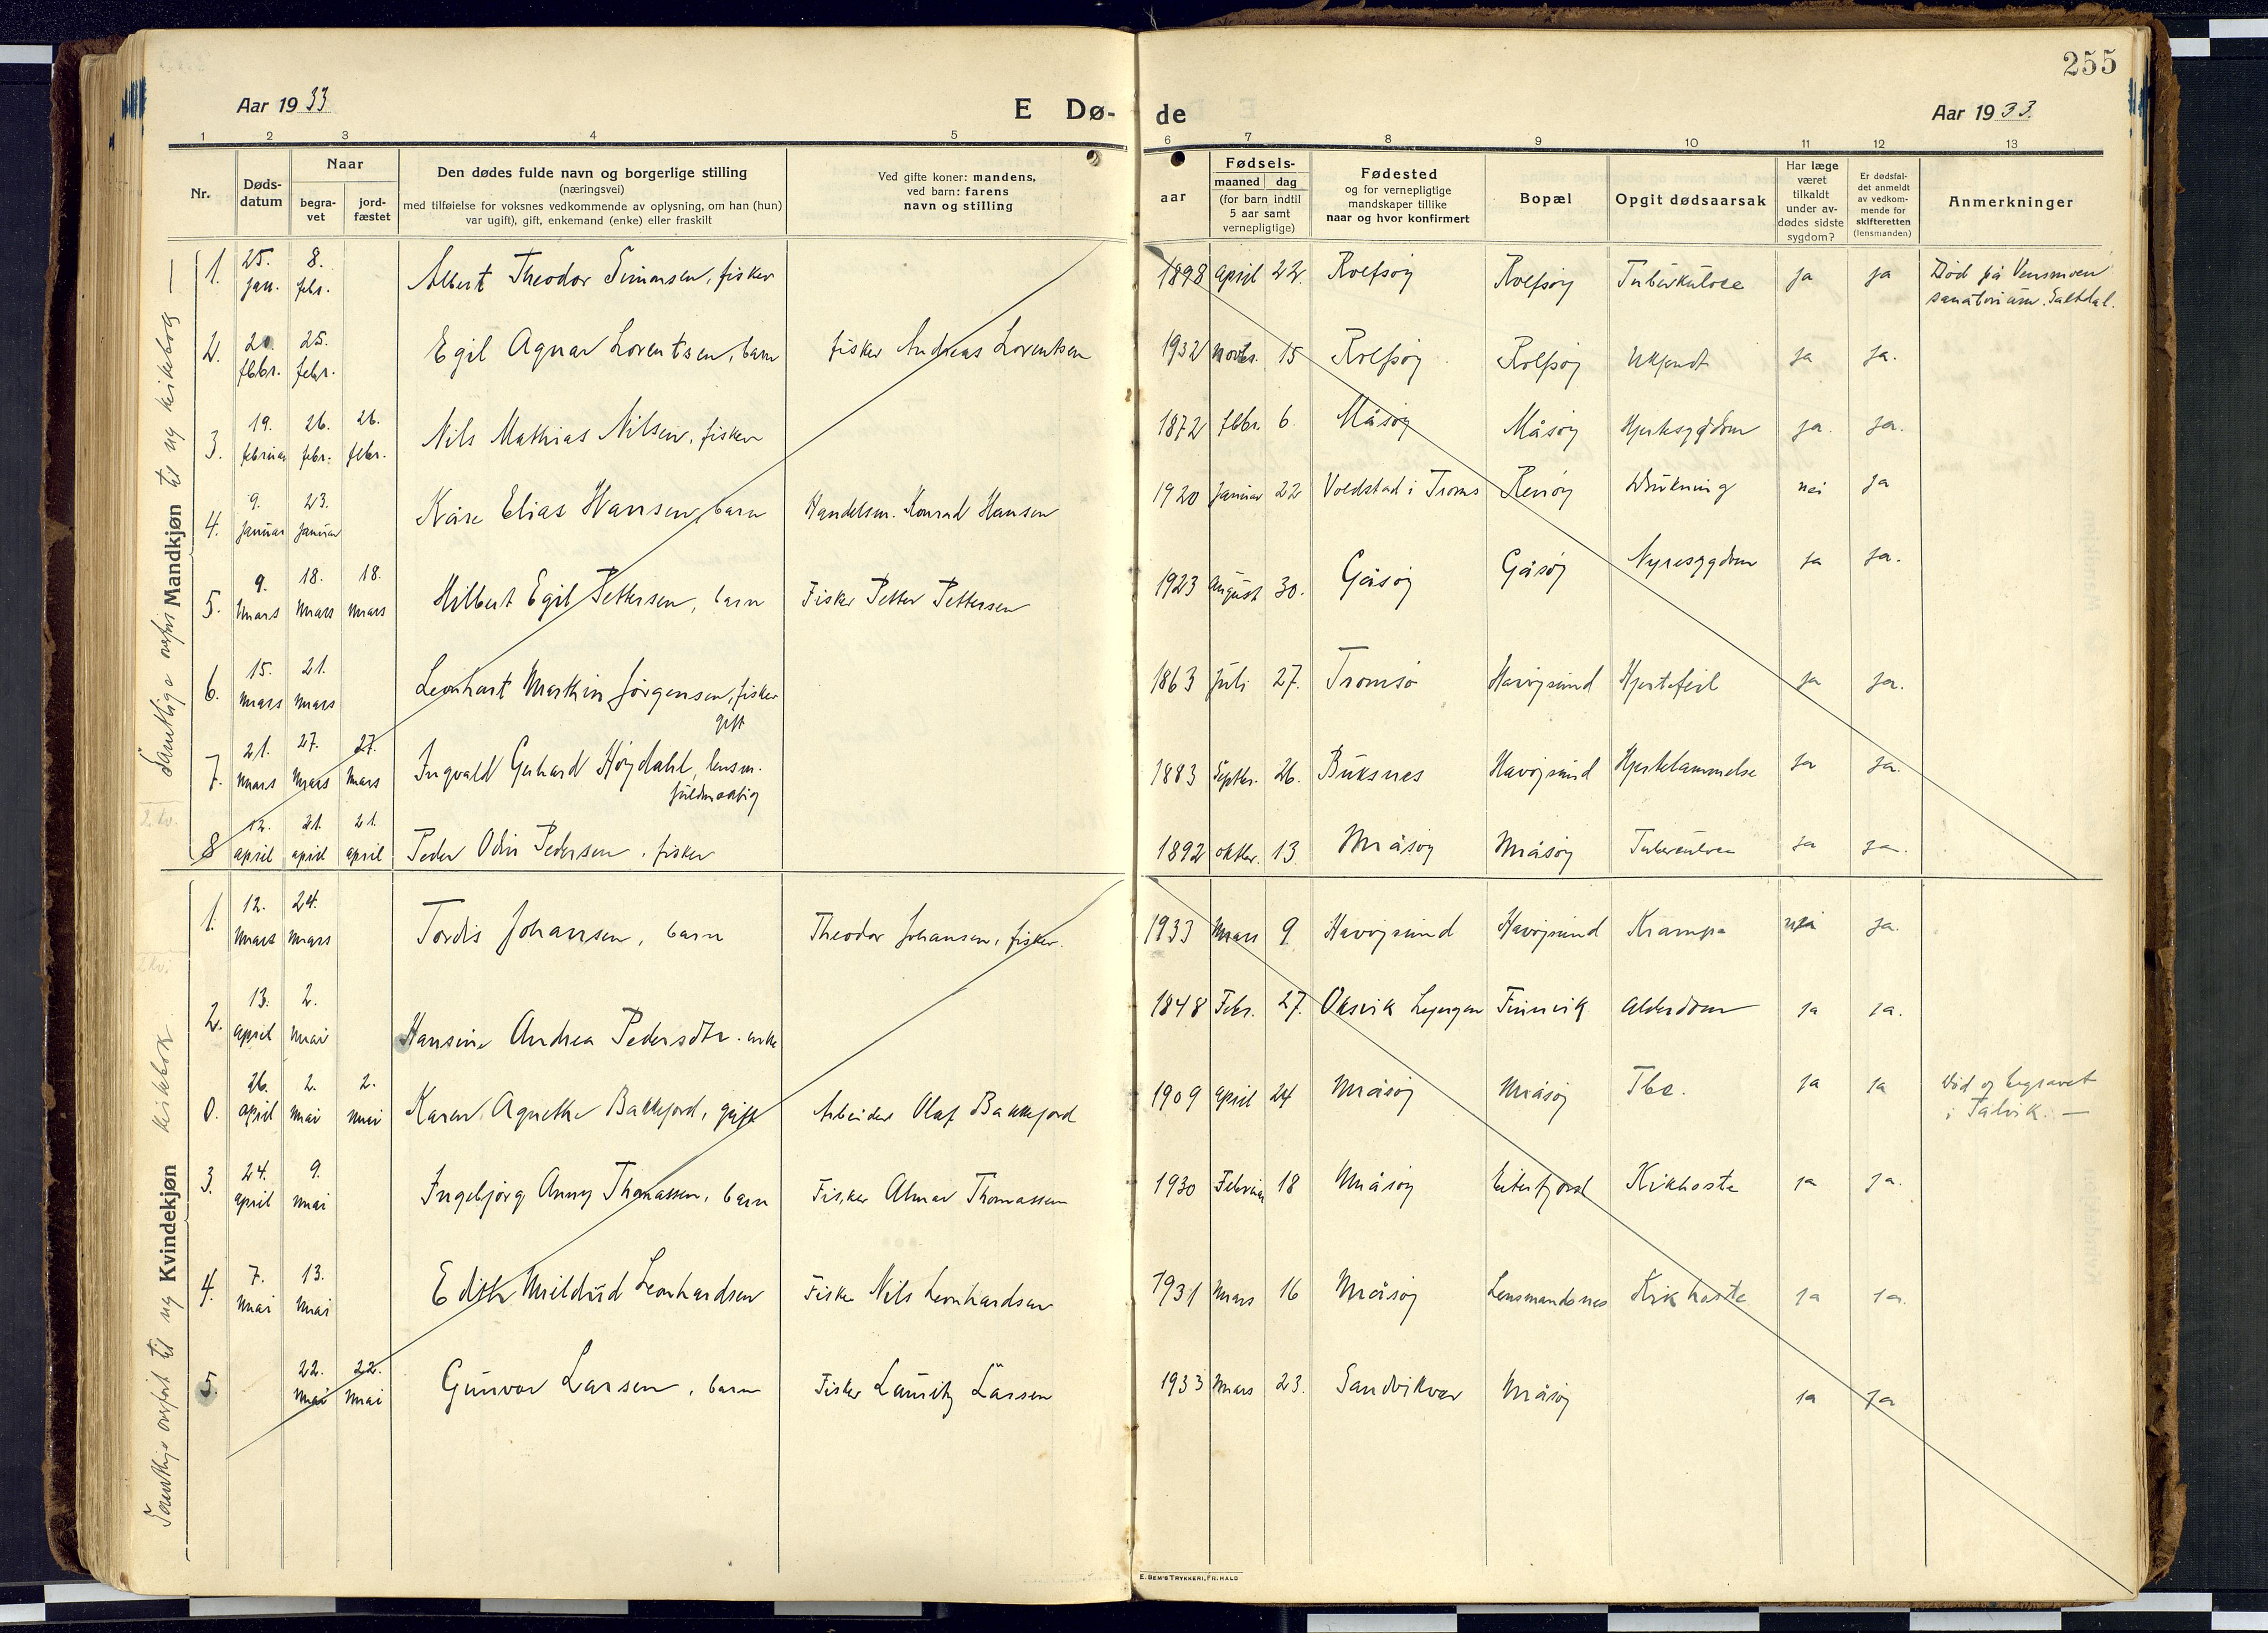 255
Aar 1933
E Dø-
de
Aar 1933.
1 2 3 4 5 6 7 8 9 10 11 12 13
Nr.
Døds-
datum
Naar
begra-
vet
jord-
fæstet
Den dødes fulde navn og borgerlige stilling
(næringsvei)
med tilføielse for voksnes vedkommende av oplysning, om han (hun)
var ugift), gift, enkemand (enke) eller fraskilt
Ved gifte koner: mandens,
ved barn: farens
navn og stilling
Fødsels-
aar
maaned dag
(for barn indtil
5 aar samt
vernepligtige)
Fødested
og for vernepligtige
mandskaper tillike
naar og hvor konfirmert
Bopæl
Opgit dødsaarsak
Har læge
været
tilkaldt
under av-
dødes sidste
sygdom?
Er dødsfal-
det anmeldt
av vedkom-
mende for
skifteretten
(lensmanden)
Anmerkninger
Mandkjøn
Samtlige ovfört til ny kirkebog —
1. 25. jan. 8. febr. Albert Theodor Simonsen, fisker 1898 april 22. Rolfsøy Rolfsøy Tuberkulose ja ja Død på Vensmoen
sanatorium. Saltdal.
2. 20. febr. 25. febr. Egil Agnar Lorentsen, barn fisker Andreas Lorentsen 1932 novbr. 15 Rolfsøy Rolfsøy Ukjendt ja ja.
3. 19. februar 26. febr. 26. febr. Nils Mathias Nilsen, fisker 1872 febr. 6. Måsøy Måsøy Hjertesygdom ja. ja.
4. 9. januar 23. januar Kåre Elias Hansen, barn Handelsm. Konrad Hansen 1920 januar 22 Voldstad i Troms Renøy Drukning nei ja
5. 9. mars 18. mars 18. mars Hilbert Egil Pettersen, barn Fisker Petter Pettersen 1923 august 30. Gåsøy Gåsøy Nyresygdom ja ja.
6. 15. mars 21. mars Leonhart Martin Jørgensen, fisker
gift 1863 juli 27. Tromsø Havøysund Hjertefeil ja ja.
7. 21. mars 27. mars 27. mars Ingvald Gerhard Høydahl, lensm.
fuldmægtig 1883 Septbr. 26. Buksnes Havøysund Hjertelammelse ja ja.
8 12. april 21. april 21. april Peder Odin Pedersen, fisker 1892 oktbr. 13 Måsøy Måsøy Tuberculose ja ja.
Kvindekjøn
Samtlige ovfört til ny kirkebok.
1. 12. mars 24. mars Tordis Johansen, barn Theodor Johansen, fisker. 1933 mars 9. Havøysund Havøysund Krampe nei ja.
2. 13. april 2. mai Hansine Andrea Pedersdtr. enke 1848 Febr. 27. Oksvik Lyngen Finnvik Alderdom ja ja.
0. 26. april 2. mai 2. mai Karen Agnethe Bakkejord, gift Arbeider Olaf Bakkejord 1909 april 24 Måsøy Måsøy Tbc. ja ja Død og begravet
i Talvik. —
3. 24. april 9. mai Ingebjørg Anny Thomassen, barn Fisker Almar Thomassen 1930 Februar 18 Måsøy Eiterfjord Kikhoste ja ja.
4. 7. mai 13. mai Edith Mildrid Leonhardsen Fisker Nils Leonhardsen 1931 mars 16 Måsøy Lensmandsnes Kikhoste ja ja.
5. 22. mai 22. mai Gunvor Larsen, barn Fisker Lauritz Larsen 1933 mars 23. Sandvikvær Måsøy ja ja
E. BEM'S TRYKKERI, FR. HALD